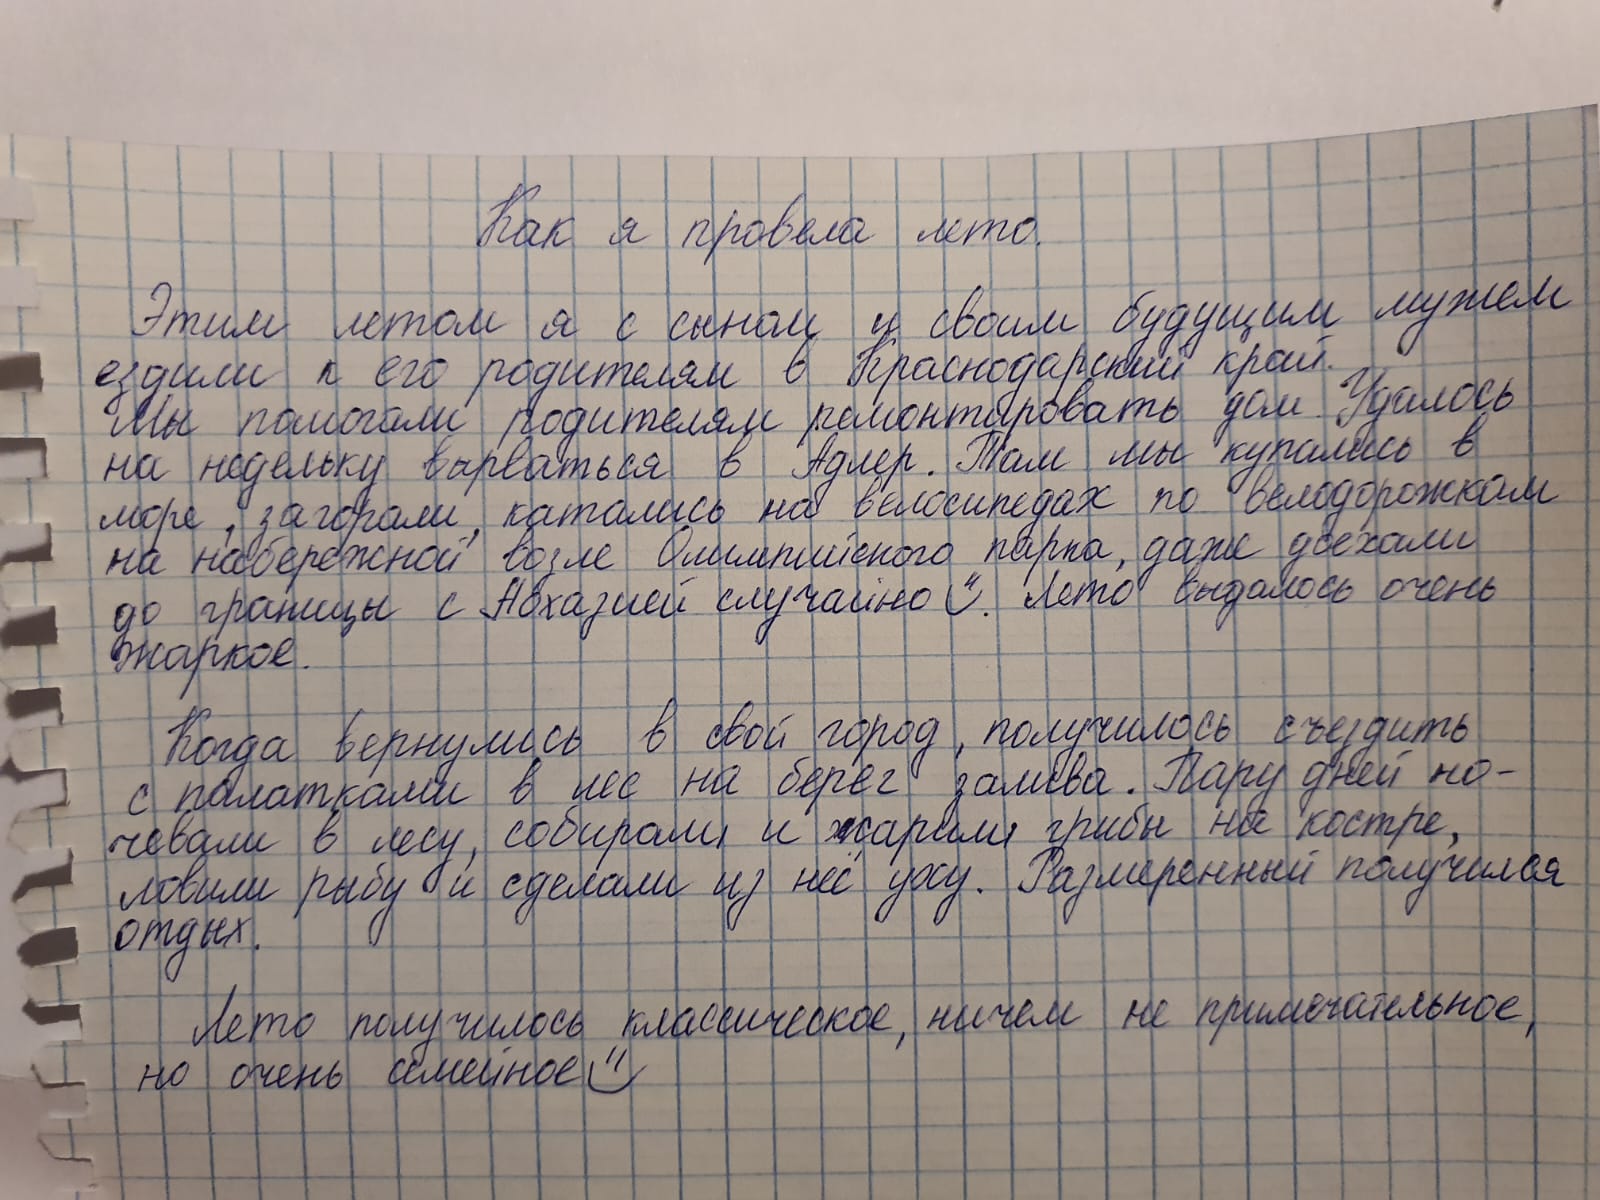 Как я провела лето.
Этим летом я с сыном и своим будущим мужем
ездили к его родителям в Краснодарский край.
Мы помогали родителям ремонтировать дом. Удалось
на недельку вырваться в Адлер. Там мы купались в
море, загорали, катались на велосипедах по велодорожкам
на набережной возле Олимпийского парка, даже доехали
до границы с Абхазией случайно. Лето выдалось очень
жаркое.
Когда вернулись в свой город, получилось съездить
с палатками в лес на берег залива. Пару дней но-
чевали в лесу, собирали и жарили грибы на костре,
ловили рыбу и сделали из неё уху. Размеренный получился
отдых.
Лето получилось классическое, ничем не примечательное,
но очень семейное